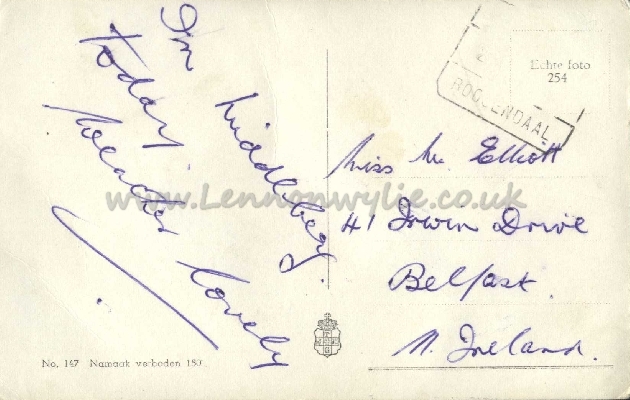 In Middelberg.
today
Weather lovely
Echte foto
254
ROOSENDAAL
Miss M. Elliott
41 Irwin Drive
Belfast.
N. Ireland.
www.Lennonwylie.co.uk
No. 147 Namaak verboden 150